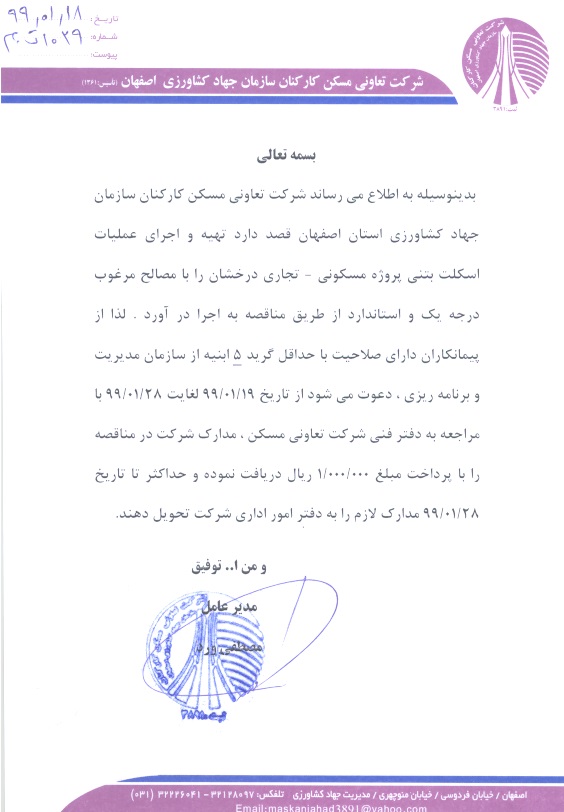 تاریخ: ۹۹,۰۱,۱۸
شماره: ۱۰۲۹
پیوست:
شرکت تعاونی مسکن کارکنان سازمان جهاد کشاورزی اصفهان (تاسیس:۱۳۶۱)
ثبت:۳۸۹۱
بسمه تعالی
بدینوسیله به اطلاع می رساند شرکت تعاونی مسکن کارکنان سازمان
جهاد کشاورزی استان اصفهان قصد دارد تهیه و اجرای عملیات
اسکلت بتنی پروژه مسکونی - تجاری درخشان را با مصالح مرغوب
درجه یک و استاندارد از طریق مناقصه به اجرا در آورد . لذا از
پیمانکاران دارای صلاحیت با حداقل گرید ۵ ابنیه از سازمان مدیریت
و برنامه ریزی ، دعوت می شود از تاریخ ۹۹/۰۱/۱۹ لغایت ۹۹/۰۱/۲۸ با
مراجعه به دفتر فنی شرکت تعاونی مسکن ، مدارک شرکت در مناقصه
را با پرداخت مبلغ ۱/۰۰۰/۰۰۰ ریال دریافت نموده و حداکثر تا تاریخ
۹۹/۰۱/۲۸ مدارک لازم را به دفتر امور اداری شرکت تحویل دهند.
و من ا.. توفیق
مدیر عامل
مصطفی ورد
اصفهان / خیابان فردوسی / خیابان منوچهری / مدیریت جهاد کشاورزی تلفکس: ۳۲۱۲۸۰۹۷ - ۳۲۲۲۶۰۴۱ (۰۳۱)
Email:maskanjahad3891@yahoo.com